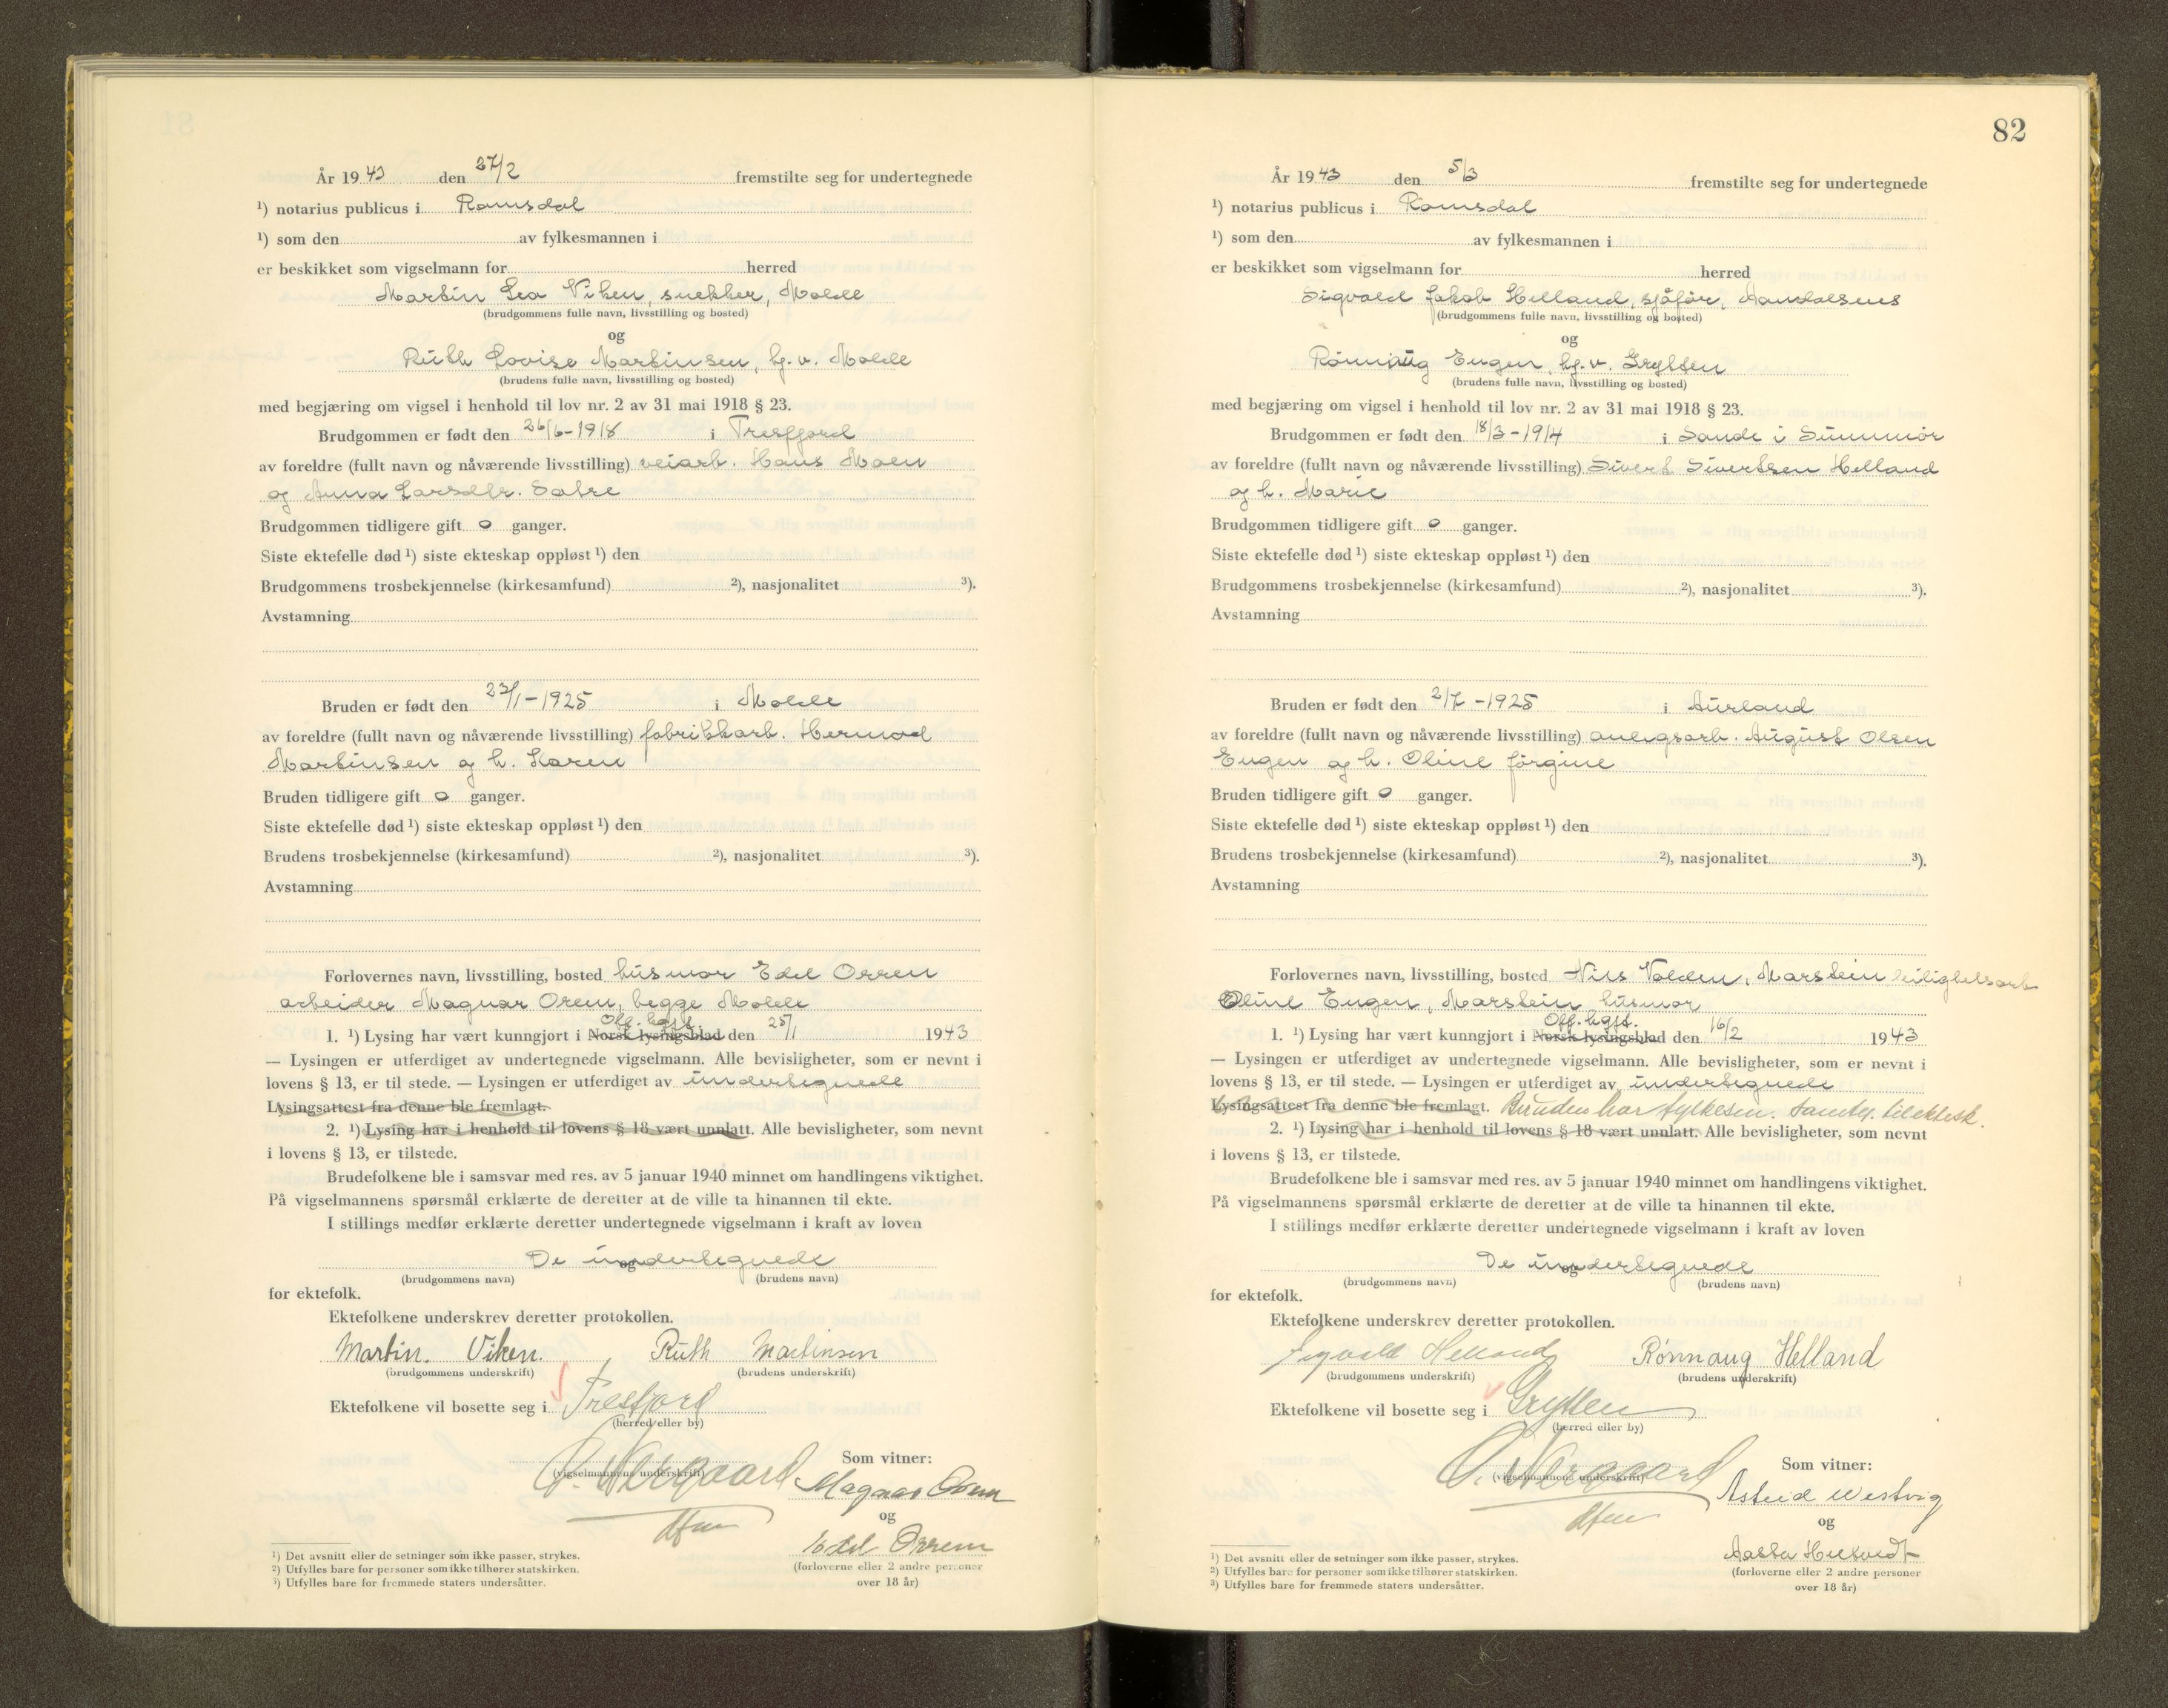 År 1943 den 27/2 fremstilte seg for undertegnede
¹) notarius publicus i Romsdal
¹) som den av fylkesmannen i
er beskikket som vigselmann for herred
Martin Lea Viken, snekker, Molde
(brudgommens fulle navn, livsstilling og bosted)
og
Ruth Lovise Martinsen, hj.v. Molde
(brudens fulle navn, livsstilling og bosted)
med begjæring om vigsel i henhold til lov nr. 2 av 31 mai 1918 § 23.
Brudgommen er født den 26/6-1918 i Tresfjord
av foreldre (fullt navn og nåværende livsstilling) veiarb. Hans Moen
og Anna Larsdtr. Satre
Brudgommen tidligere gift 0 ganger.
Siste ektefelle død ¹) siste ekteskap oppløst ¹) den
Brudgommens trosbekjennelse (kirkesamfund) ²), nasjonalitet ³).
Avstamning
Bruden er født den 23/1-1925 i Molde
av foreldre (fullt navn og nåværende livsstilling) fabrikkarb. Hermod
Martinsen og h. Karen
Bruden tidligere gift 0 ganger.
Siste ektefelle død ¹) siste ekteskap oppløst ¹) den
Brudens trosbekjennelse (kirkesamfund) ²), nasjonalitet ³).
Avstamning
Forlovernes navn, livsstilling, bosted husmor Edel Orren
arbeider Magnar Orem, begge Molde
Off. kgjt.
1. ¹) Lysing har vært kunngjort i Norsk lysingsblad den 25/1 1943
— Lysingen er utferdiget av undertegnede vigselmann. Alle bevisligheter, som er nevnt i
lovens § 13, er til stede. — Lysingen er utferdiget av undertegnede
Lysingsattest fra denne ble fremlagt.
2. ¹) Lysing har i henhold til lovens § 18 vært unnlatt. Alle bevisligheter, som nevnt
i lovens § 13, er tilstede.
Brudefolkene ble i samsvar med res. av 5 januar 1940 minnet om handlingens viktighet.
På vigselmannens spørsmål erklærte de deretter at de ville ta hinannen til ekte.
I stillings medfør erklærte deretter undertegnede vigselmann i kraft av loven
De undertegnede
og
(brudgommens navn) (brudens navn)
for ektefolk.
Ektefolkene underskrev deretter protokollen.
Martin. Viken. Ruth Martinsen
(brudgommens underskrift) (brudens underskrift)
Ektefolkene vil bosette seg i Tresfjord
(herred eller by)
Som vitner:
(vigselmannens underskrift) Magnar Orem
og
Edel Orrem
(forloverne eller 2 andre personer
over 18 år)
¹) Det avsnitt eller de setninger som ikke passer, strykes.
²) Utfylles bare for personer som ikke tilhører statskirken.
³) Utfylles bare for fremmede staters undersåtter.
82
År 1943 den 5/3 fremstilte seg for undertegnede
¹) notarius publicus i Romsdal
¹) som den av fylkesmannen i
er beskikket som vigselmann for herred
Sigvald Jakob Helland, sjåfør, Aandalsnes
(brudgommens fulle navn, livsstilling og bosted)
og
Rønnaug Eugen, hj.v. Grytten
(brudens fulle navn, livsstilling og bosted)
med begjæring om vigsel i henhold til lov nr. 2 av 31 mai 1918 § 23.
Brudgommen er født den 18/3-1914 i Sande i Sunnmør
av foreldre (fullt navn og nåværende livsstilling) Sivert Sivertsen Helland
og h. Marie
Brudgommen tidligere gift 0 ganger.
Siste ektefelle død ¹) siste ekteskap oppløst ¹) den
Brudgommens trosbekjennelse (kirkesamfund) ²), nasjonalitet ³).
Avstamning
Bruden er født den 2/7-1925 i Aurland
av foreldre (fullt navn og nåværende livsstilling) anlegsarb. August Olsen
Eugen og h. Oline Jørgine
Bruden tidligere gift 0 ganger.
Siste ektefelle død ¹) siste ekteskap oppløst ¹) den
Brudens trosbekjennelse (kirkesamfund) ²), nasjonalitet ³).
Avstamning
Forlovernes navn, livsstilling, bosted Nils Volden, Marstein leilighetsarb
Oline Eugen, Marstein husmor
Off. kgjt.
1. ¹) Lysing har vært kunngjort i Norsk lysingsblad den 16/2 1943
— Lysingen er utferdiget av undertegnede vigselmann. Alle bevisligheter, som er nevnt i
lovens § 13, er til stede. — Lysingen er utferdiget av undertegnede
Lysingsattest fra denne ble fremlagt. Bruden har fylkesm. samty. til ektesk.
2. ¹) Lysing har i henhold til lovens § 18 vært unnlatt. Alle bevisligheter, som nevnt
i lovens § 13, er tilstede.
Brudefolkene ble i samsvar med res. av 5 januar 1940 minnet om handlingens viktighet.
På vigselmannens spørsmål erklærte de deretter at de ville ta hinannen til ekte.
I stillings medfør erklærte deretter undertegnede vigselmann i kraft av loven
De undertegnede
og
(brudgommens navn) (brudens navn)
for ektefolk.
Ektefolkene underskrev deretter protokollen.
Sigvald Helland Rønnaug Helland
(brudgommens underskrift) (brudens underskrift)
Ektefolkene vil bosette seg i Grytten
(herred eller by)
Som vitner:
(vigselmannens underskrift) Astrid Westvig
og
Aasta
(forloverne eller 2 andre personer
over 18 år)
¹) Det avsnitt eller de setninger som ikke passer, strykes.
²) Utfylles bare for personer som ikke tilhører statskirken.
³) Utfylles bare for fremmede staters undersåtter.